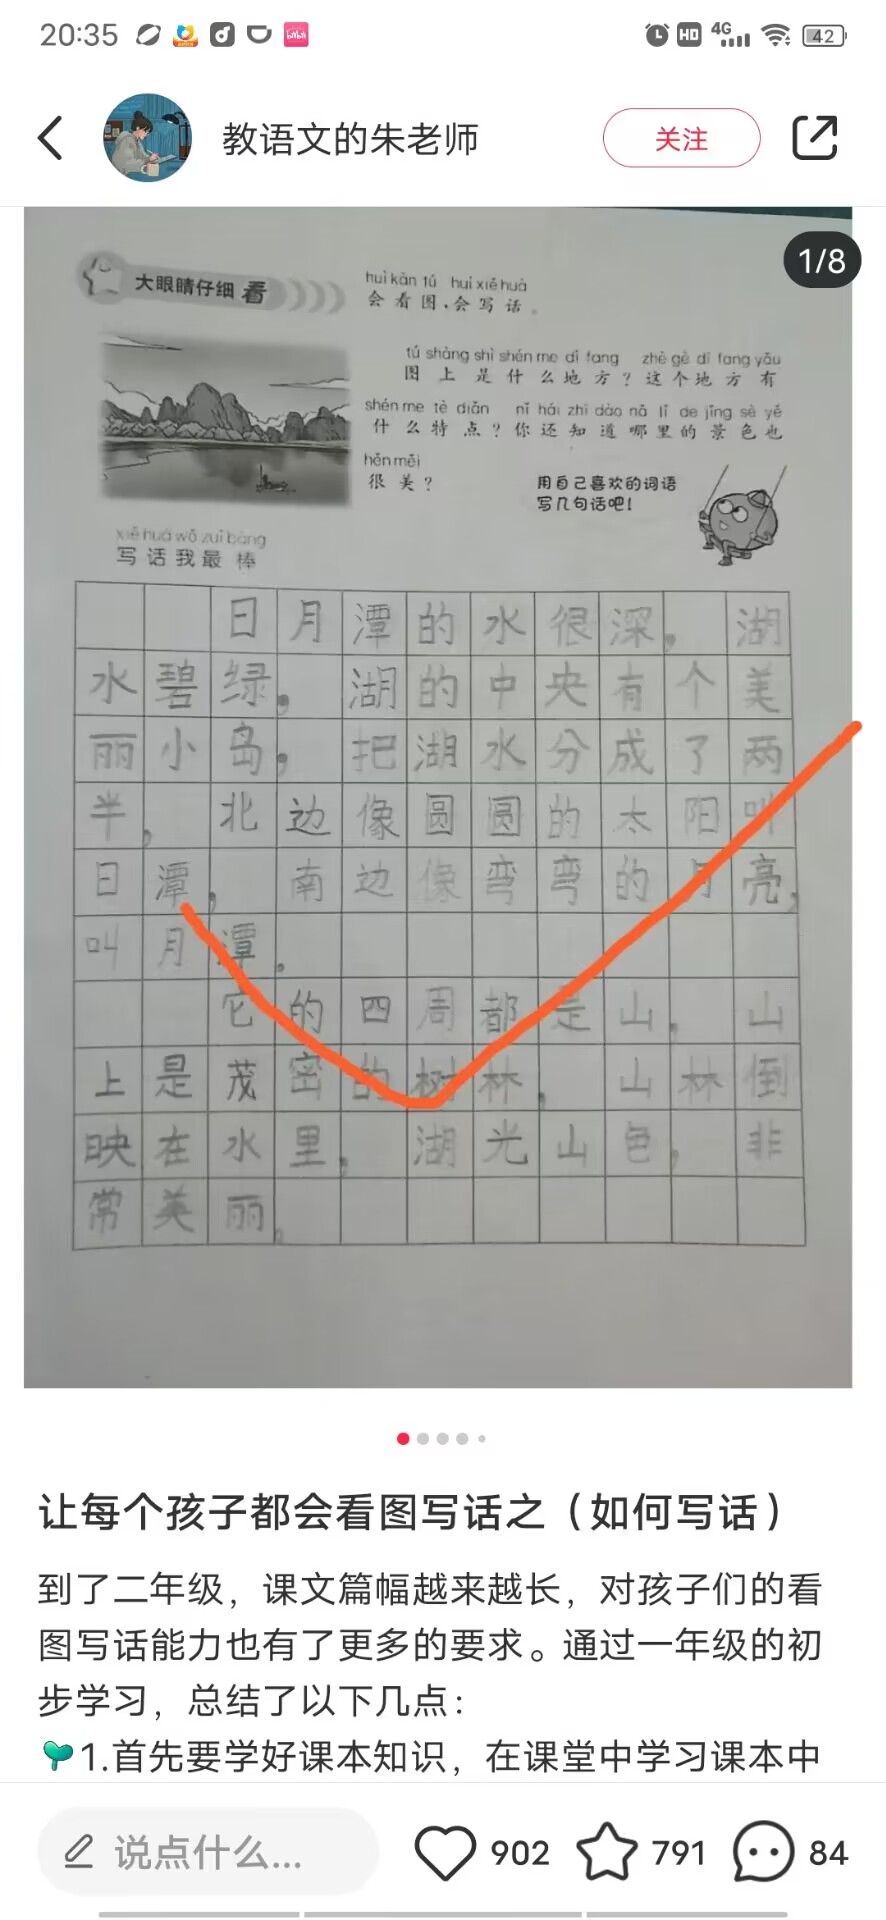 20:35
HD 4G 42
教语文的朱老师
关注
1/8
大眼睛仔细看
huì kàn tú huì xiě huà
会看图,会写话。
tú shàng shì shén me dì fang zhè gè dì fang yǒu
图上是什么地方?这个地方有
shén me tè diǎn nǐ hái zhī dào nǎ lǐ de jǐng sè yě
什么特点?你还知道哪里的景色也
hěn měi
很美?
用自己喜欢的词语
写几句话吧!
xiě huà wǒ zuì bàng
写话我最棒
日月潭的水很深,湖
水碧绿。湖的中央有个美
丽小岛,把湖水分成了两
半,北边像圆圆的太阳叫
日潭,南边像弯弯的月亮,
叫月潭。
它的四周都是山,山
上是茂密的树林,山林倒
映在水里,湖光山色,非
常美丽。
让每个孩子都会看图写话之(如何写话)
到了二年级,课文篇幅越来越长,对孩子们的看
图写话能力也有了更多的要求。通过一年级的初
步学习,总结了以下几点:
1.首先要学好课本知识,在课堂中学习课本中
说点什么...
902
791
84